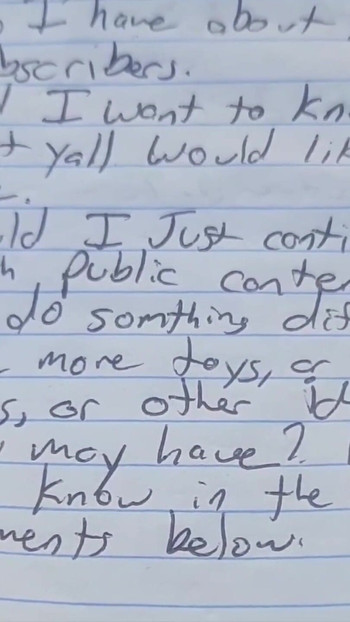 I have about
bscribers.
I want to kn
t yall would lik
ld I Just conti
h public conte
do somthing dif
more toys, or
s, or other id
may have?
know in the
ments below.